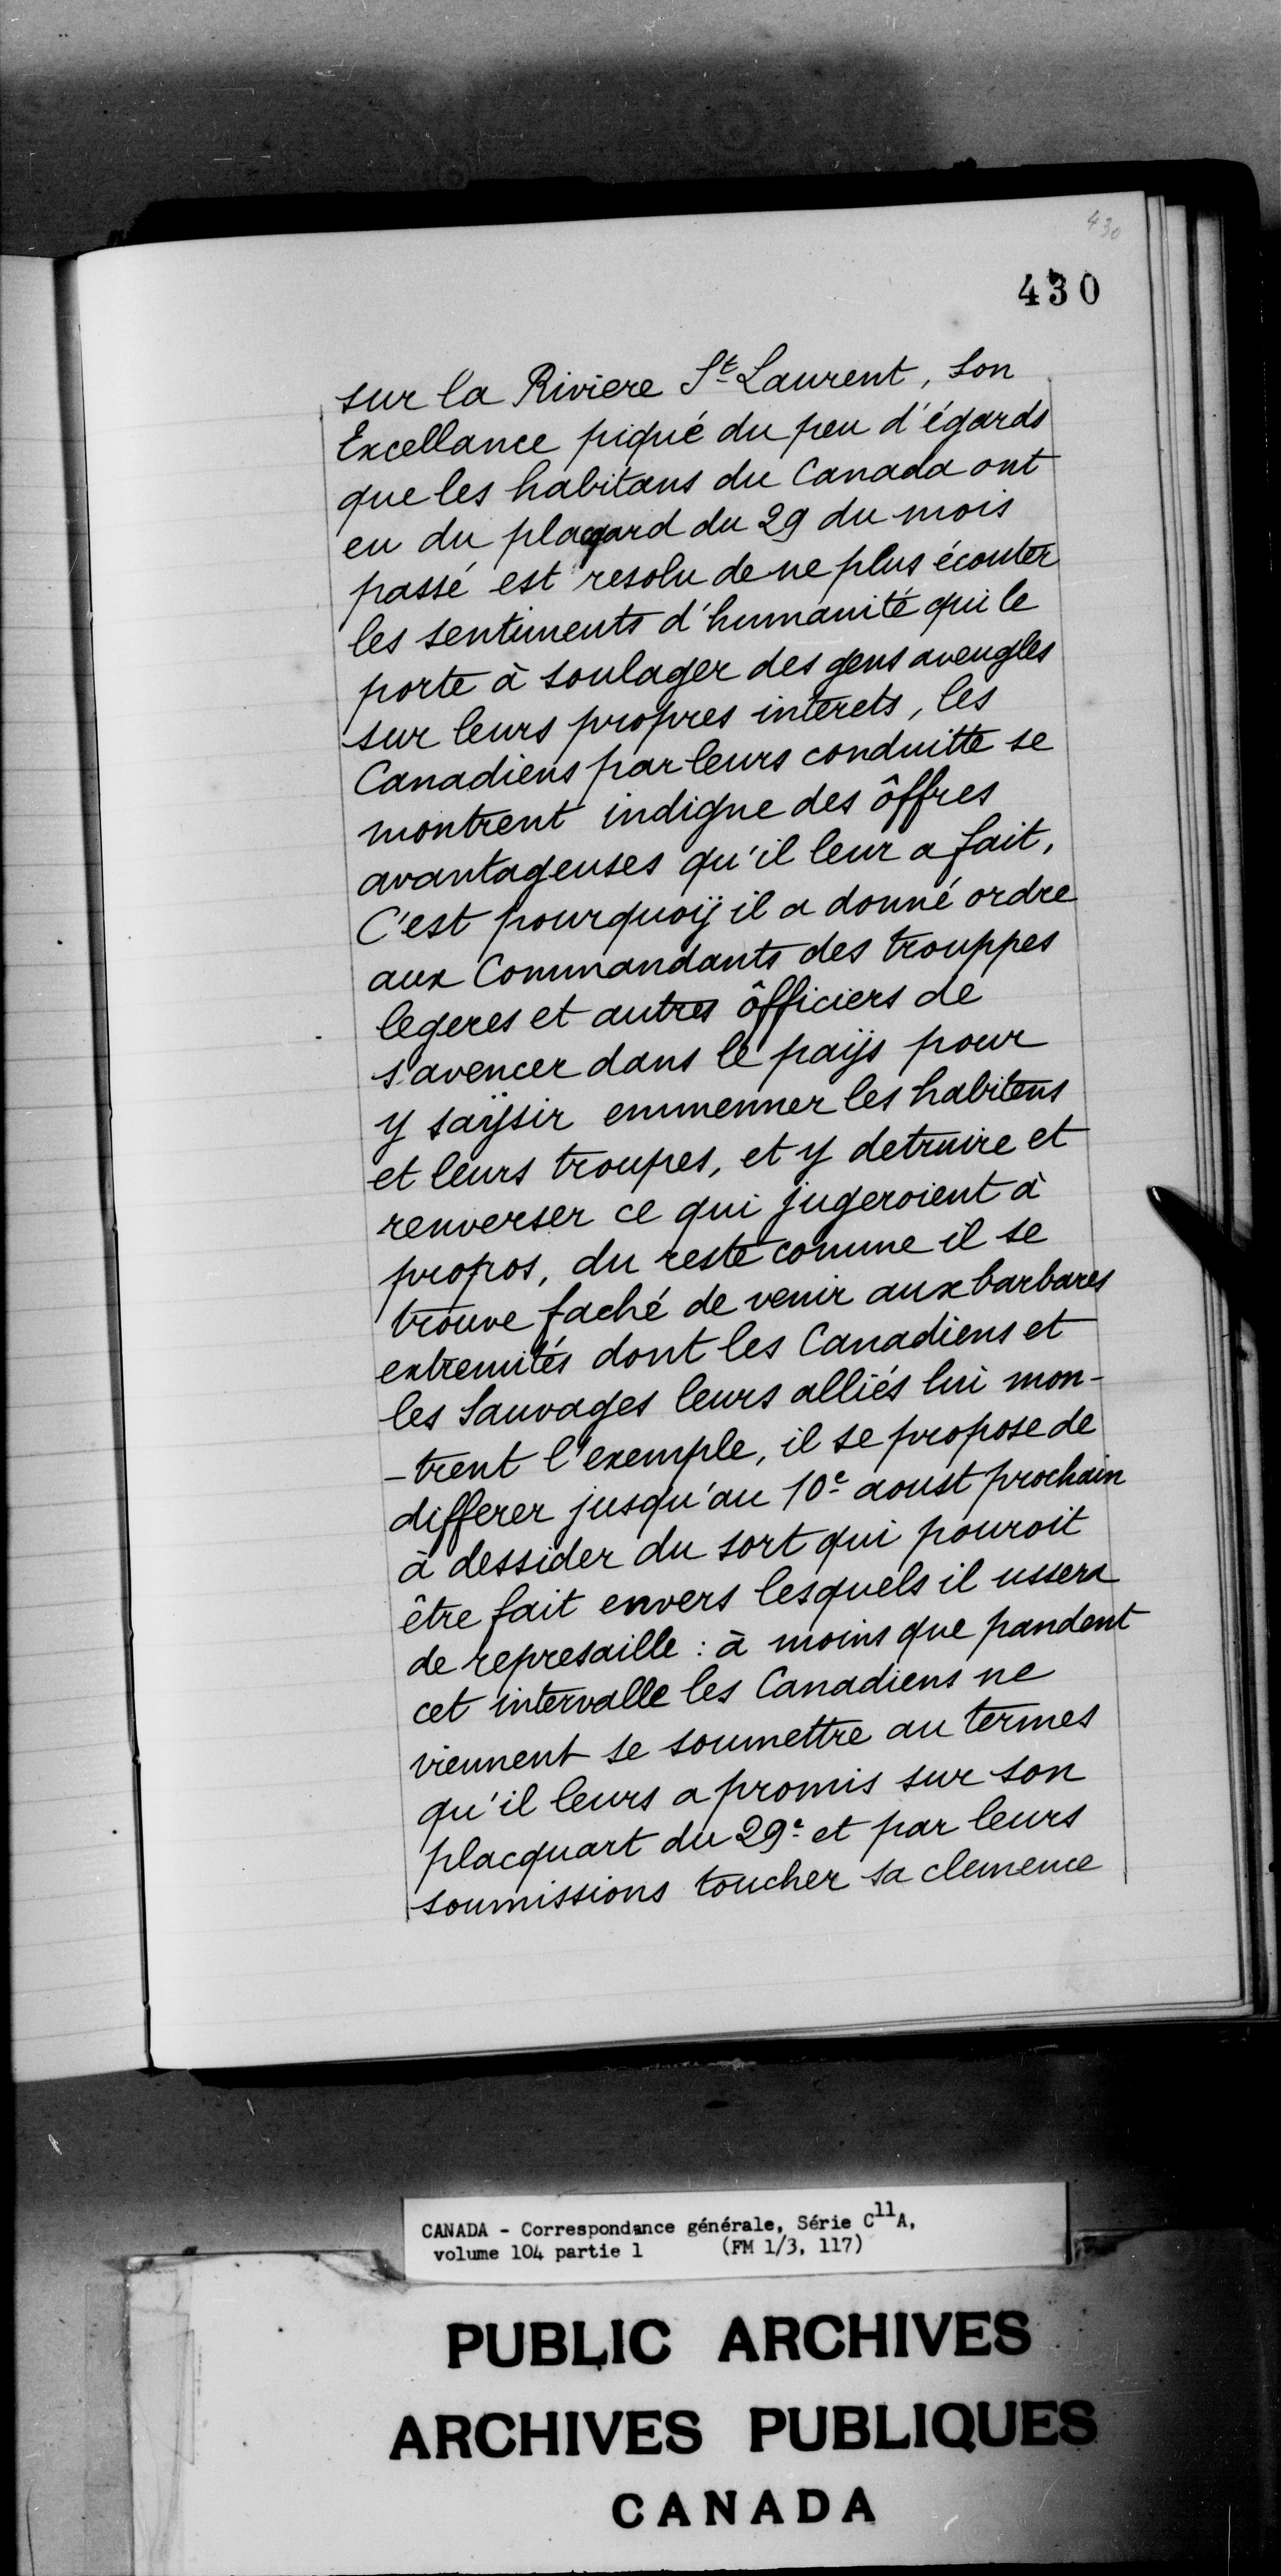 430
430
sur la Riviere St Laurent, Son
Excellance piqué du peu d'égards
que les habitans du Canada ont
eu du placard du 29 du mois
passé est resolu de ne plus écouter
les sentiments d'humanité qui le
porte à soulager des gens aveugles
sur leurs propres interets, les
Canadiens par leurs conduitte se
montrent indigne des ôffres
avantageuses qu'il leur a fait,
C'est pourquoÿ il a donné ordre
aux Commandants des trouppes
legeres et autres ôfficiers de
s'avencer dans le païjs pour
y saÿsir emmenner les habitens
et leurs troupes, et y detruire et
renverser ce qui jugeroient à
propos, du reste comme il se
trouve faché de venir aux barbares
extremités dont les Canadiens et
les Sauvages leurs alliés lui mon-
-trent l'exemple, il se propose de
differer jusqu'au 10e aoust prochain
à dessider du sort qui pouroit
être fait envers lesquels il ussera
de represaille : à moins que pandent
cet intervalle les Canadiens ne
viennent se soumettre au termes
qu'il leurs a promis sur son
placquart du 29e et par leurs
soumissions toucher sa clemence
CANADA - Correspondance générale, Série C11A,
volume 104 partie 1 (FM 1/3, 117)
PUBLIC ARCHIVES
ARCHIVES PUBLIQUES
CANADA